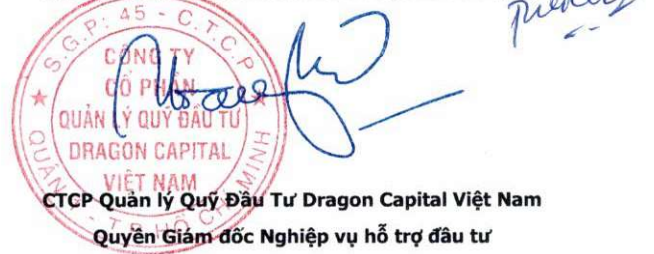 S.G.P: 45 - C.T.C.P
CÔNG TY
CỔ PHẦN
QUẢN LÝ QUỸ ĐẦU TƯ
DRAGON CAPITAL
VIỆT NAM
QUẬN - T.P HỒ CHÍ MINH
CTCP Quản lý Quỹ Đầu Tư Dragon Capital Việt Nam
Quyền Giám đốc Nghiệp vụ hỗ trợ đầu tư